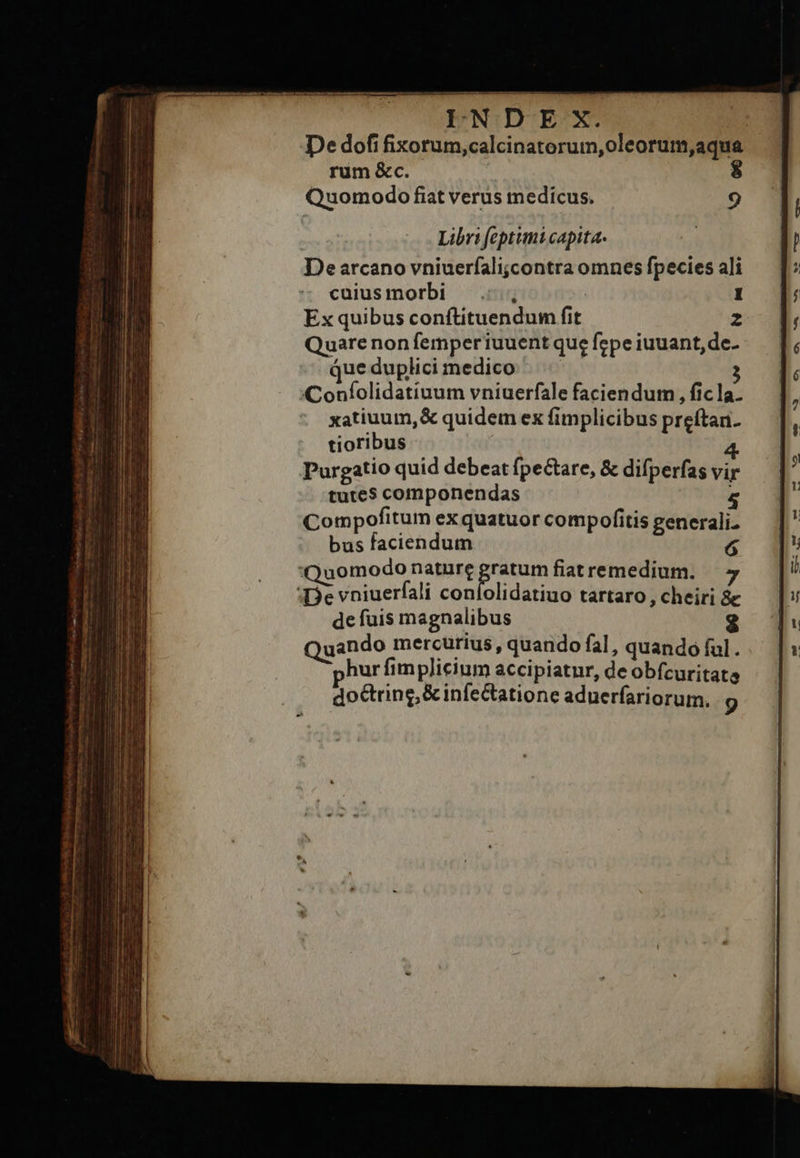 INDEX.
De dosi fixorum,calcinatorum,oleorum,aqua
rum &c. 8
Quomodo fiat verus medicus. 9
Libri septimi capita.
De arcano vniuersali;contra omnes species ali
cuius morbi 1
Ex quibus constituendum fit 2
Quare non semper iuuent quę sępe iuuant, de-
que duplici medico 3
Consolidatiuum vniuersale faciendum, sic la-
xatiuum, & quidem ex simplicibus pręstan-
tioribus 4
Purgatio quid debeat spectare, & dispersas vir
tutes componendas 5
Compositum ex quatuor compositis generali-
bus faciendum 6
Quomodo naturę gratum fiat remedium. 7
De vniuersali consolidatiuo tartaro, cheiri &
de suis magnalibus 8
Quando mercurius, quando sal, quando sul.
phur simplicium accipiatur, de obscuritate
doctrinę, & insectatione aduersariorum. 9